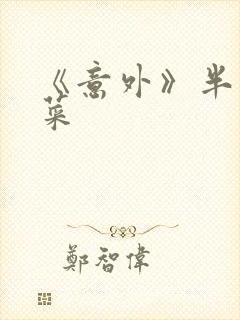 《意外》半
菜
鄭智偉